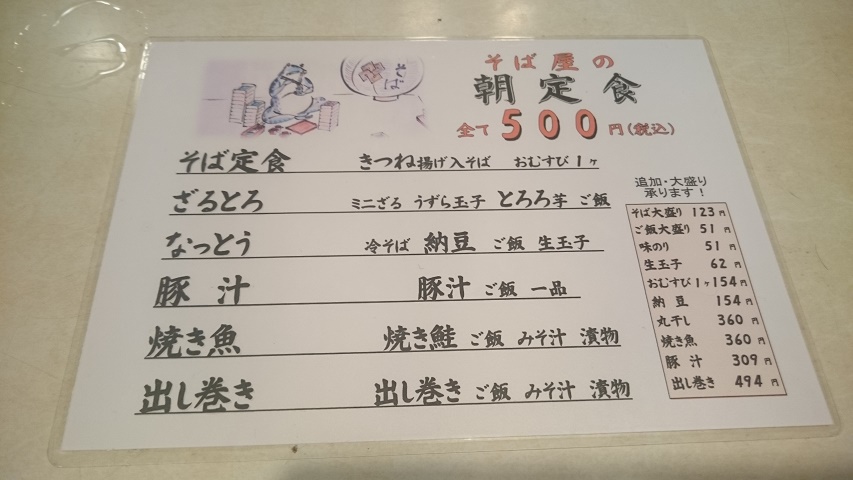 そば
そば屋の
朝定食
全て500円(税込)
そば定食 きつね揚げ入そば おむすび1ヶ
ざるとろ ミニざる うずら玉子 とろろ芋 ご飯
なっとう 冷そば 納豆 ご飯 生玉子
豚汁 豚汁 ご飯 一品
焼き魚 焼き鮭 ご飯 みそ汁 漬物
出し巻き 出し巻き ご飯 みそ汁 漬物
追加・大盛り
承ります!
そば大盛り 123円
ご飯大盛り 51円
味のり 51円
生玉子 62円
おむすび1ヶ 154円
納豆 154円
丸干し 360円
焼き魚 360円
豚汁 309円
出し巻き 494円